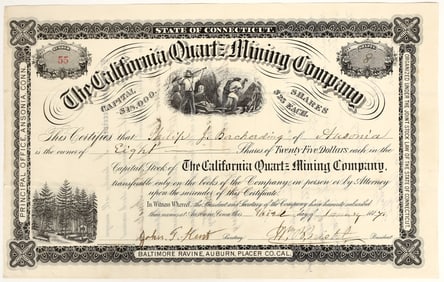 STATE OF CONNECTICUT.
55
8
The California Quartz Mining Company
CAPITAL
SHARES
$25 EACH.
This Certifies that Philip J. of Ansonia
is the owner of Eight Shares of Twenty Five Dollars each in the
Capital Stock of The California Quartz Mining Company,
transferable only on the books of the Company, in person or by Attorney
upon the surrender of this Certificate.
In Witness Whereof, the President and Secretary of the Company have hereunto subscribed
their names at Ansonia, Conn. this day of January
John T. Secretary President
BALTIMORE RAVINE, AUBURN, PLACER CO. CAL.
PRINCIPAL OFFICE, ANSONIA, CONN.
ORGANIZED UNDER THE JOINT STOCK LAW OF THE STATE OF CONNECTICUT.